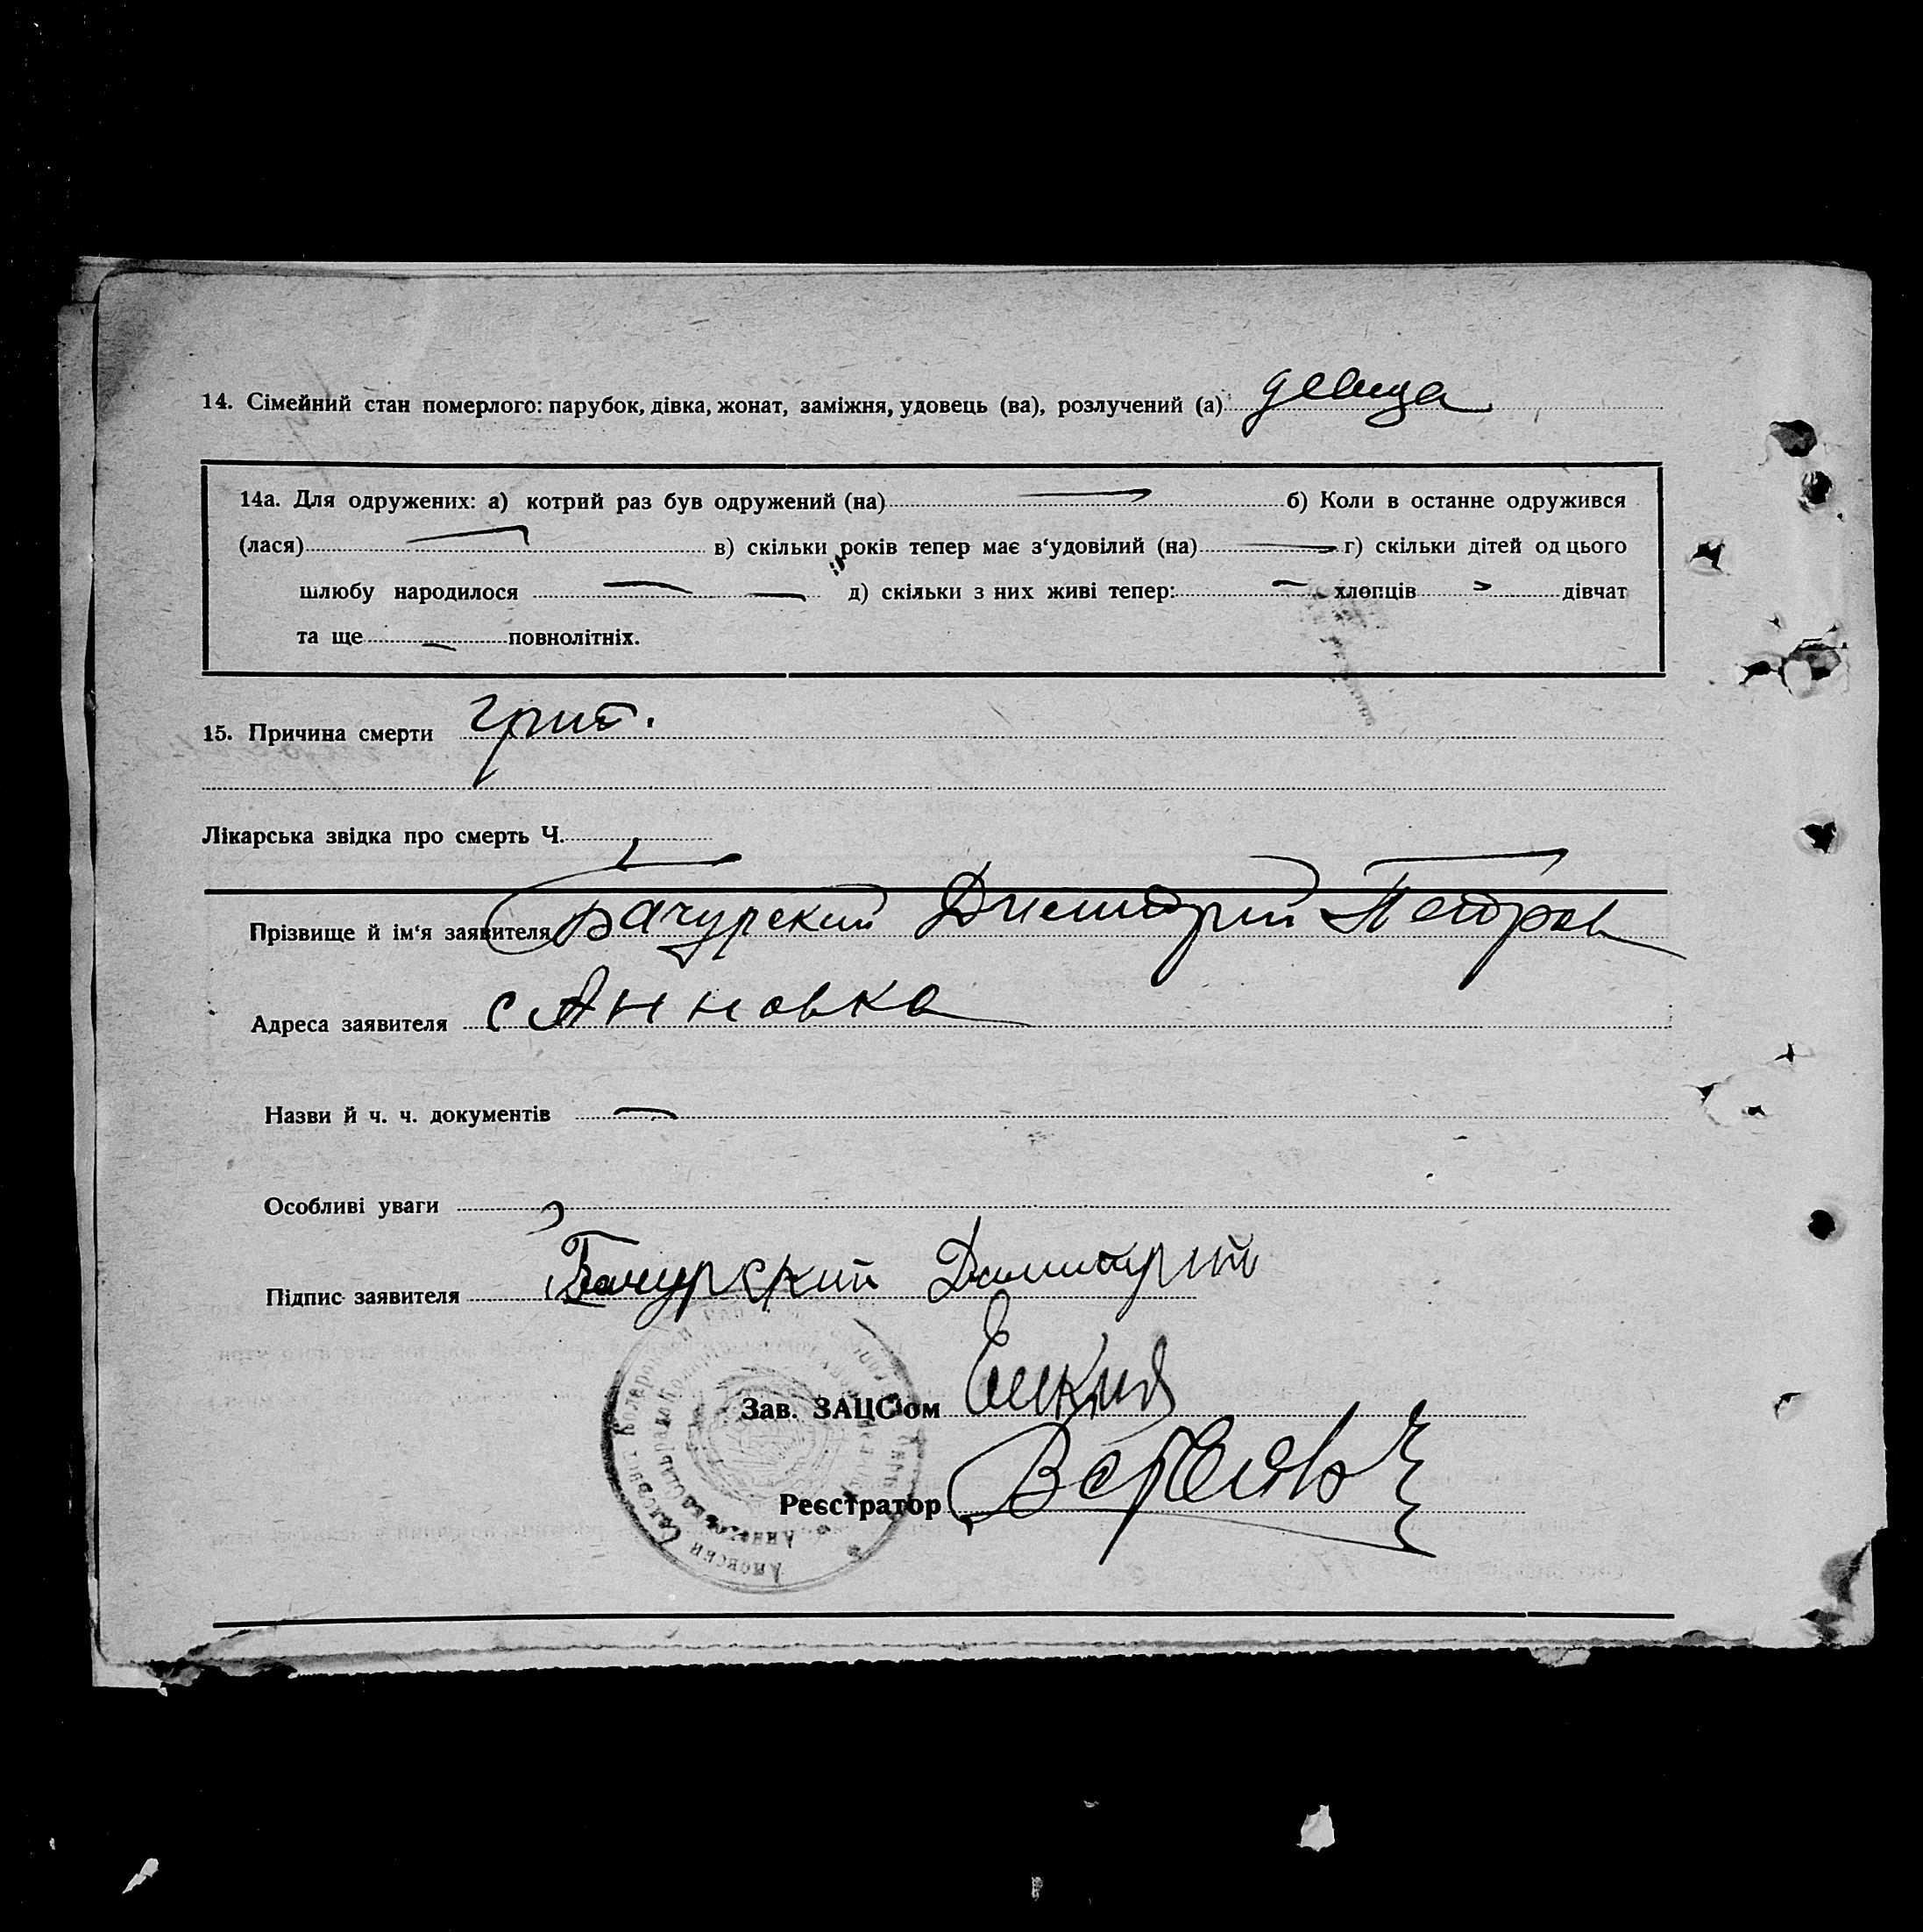 14. Сімейний стан померлого: парубок, дівка, жонат, заміжня, удовець (ва), розлучений (а) девица
14а. Для одружених: а) котрий раз був одружений (на) — б) Коли в останне одружився
(лася) — в) скільки років тепер має з‘удовілий (на) — г) скільки дітей од цього
шлюбу народилося — — д) скільки з них живі тепер: — хлопців — дівчат
та ще — повнолітніх.
15. Причина смерти грип.
Лікарська звідка про смерть Ч. —
Прізвище й ім‘я заявителя Бачурский Дмитрий Петров
Адреса заявителя с Анновка
Назви й ч. ч. документів —
Особливі уваги
Підпис заявителя Бачурский Димитрий
Зав. ЗАЦС‘ом
Реєстратор